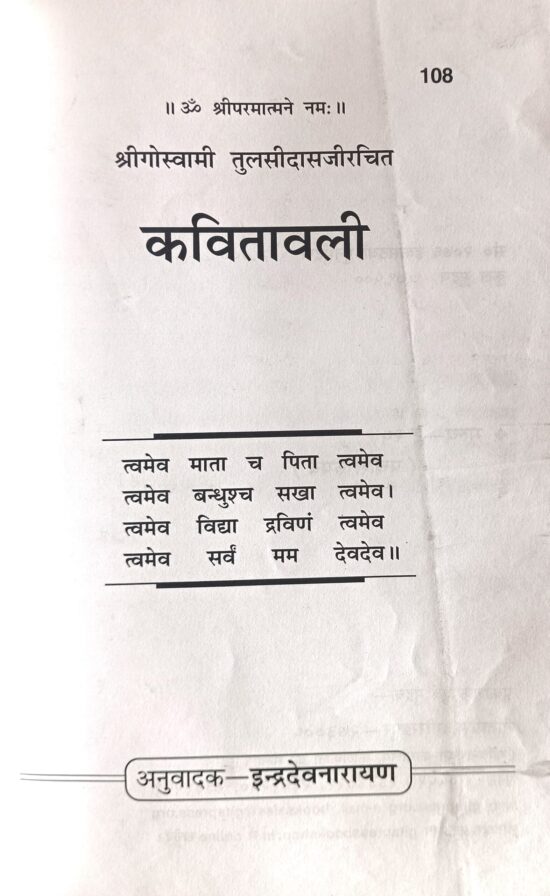 108
॥ ॐ श्रीपरमात्मने नमः॥
श्रीगोस्वामी तुलसीदासजीरचित
कवितावली
त्वमेव माता च पिता त्वमेव
त्वमेव बन्धुश्च सखा त्वमेव।
त्वमेव विद्या द्रविणं त्वमेव
त्वमेव सर्वं मम देवदेव॥
अनुवादक—इन्द्रदेवनारायण